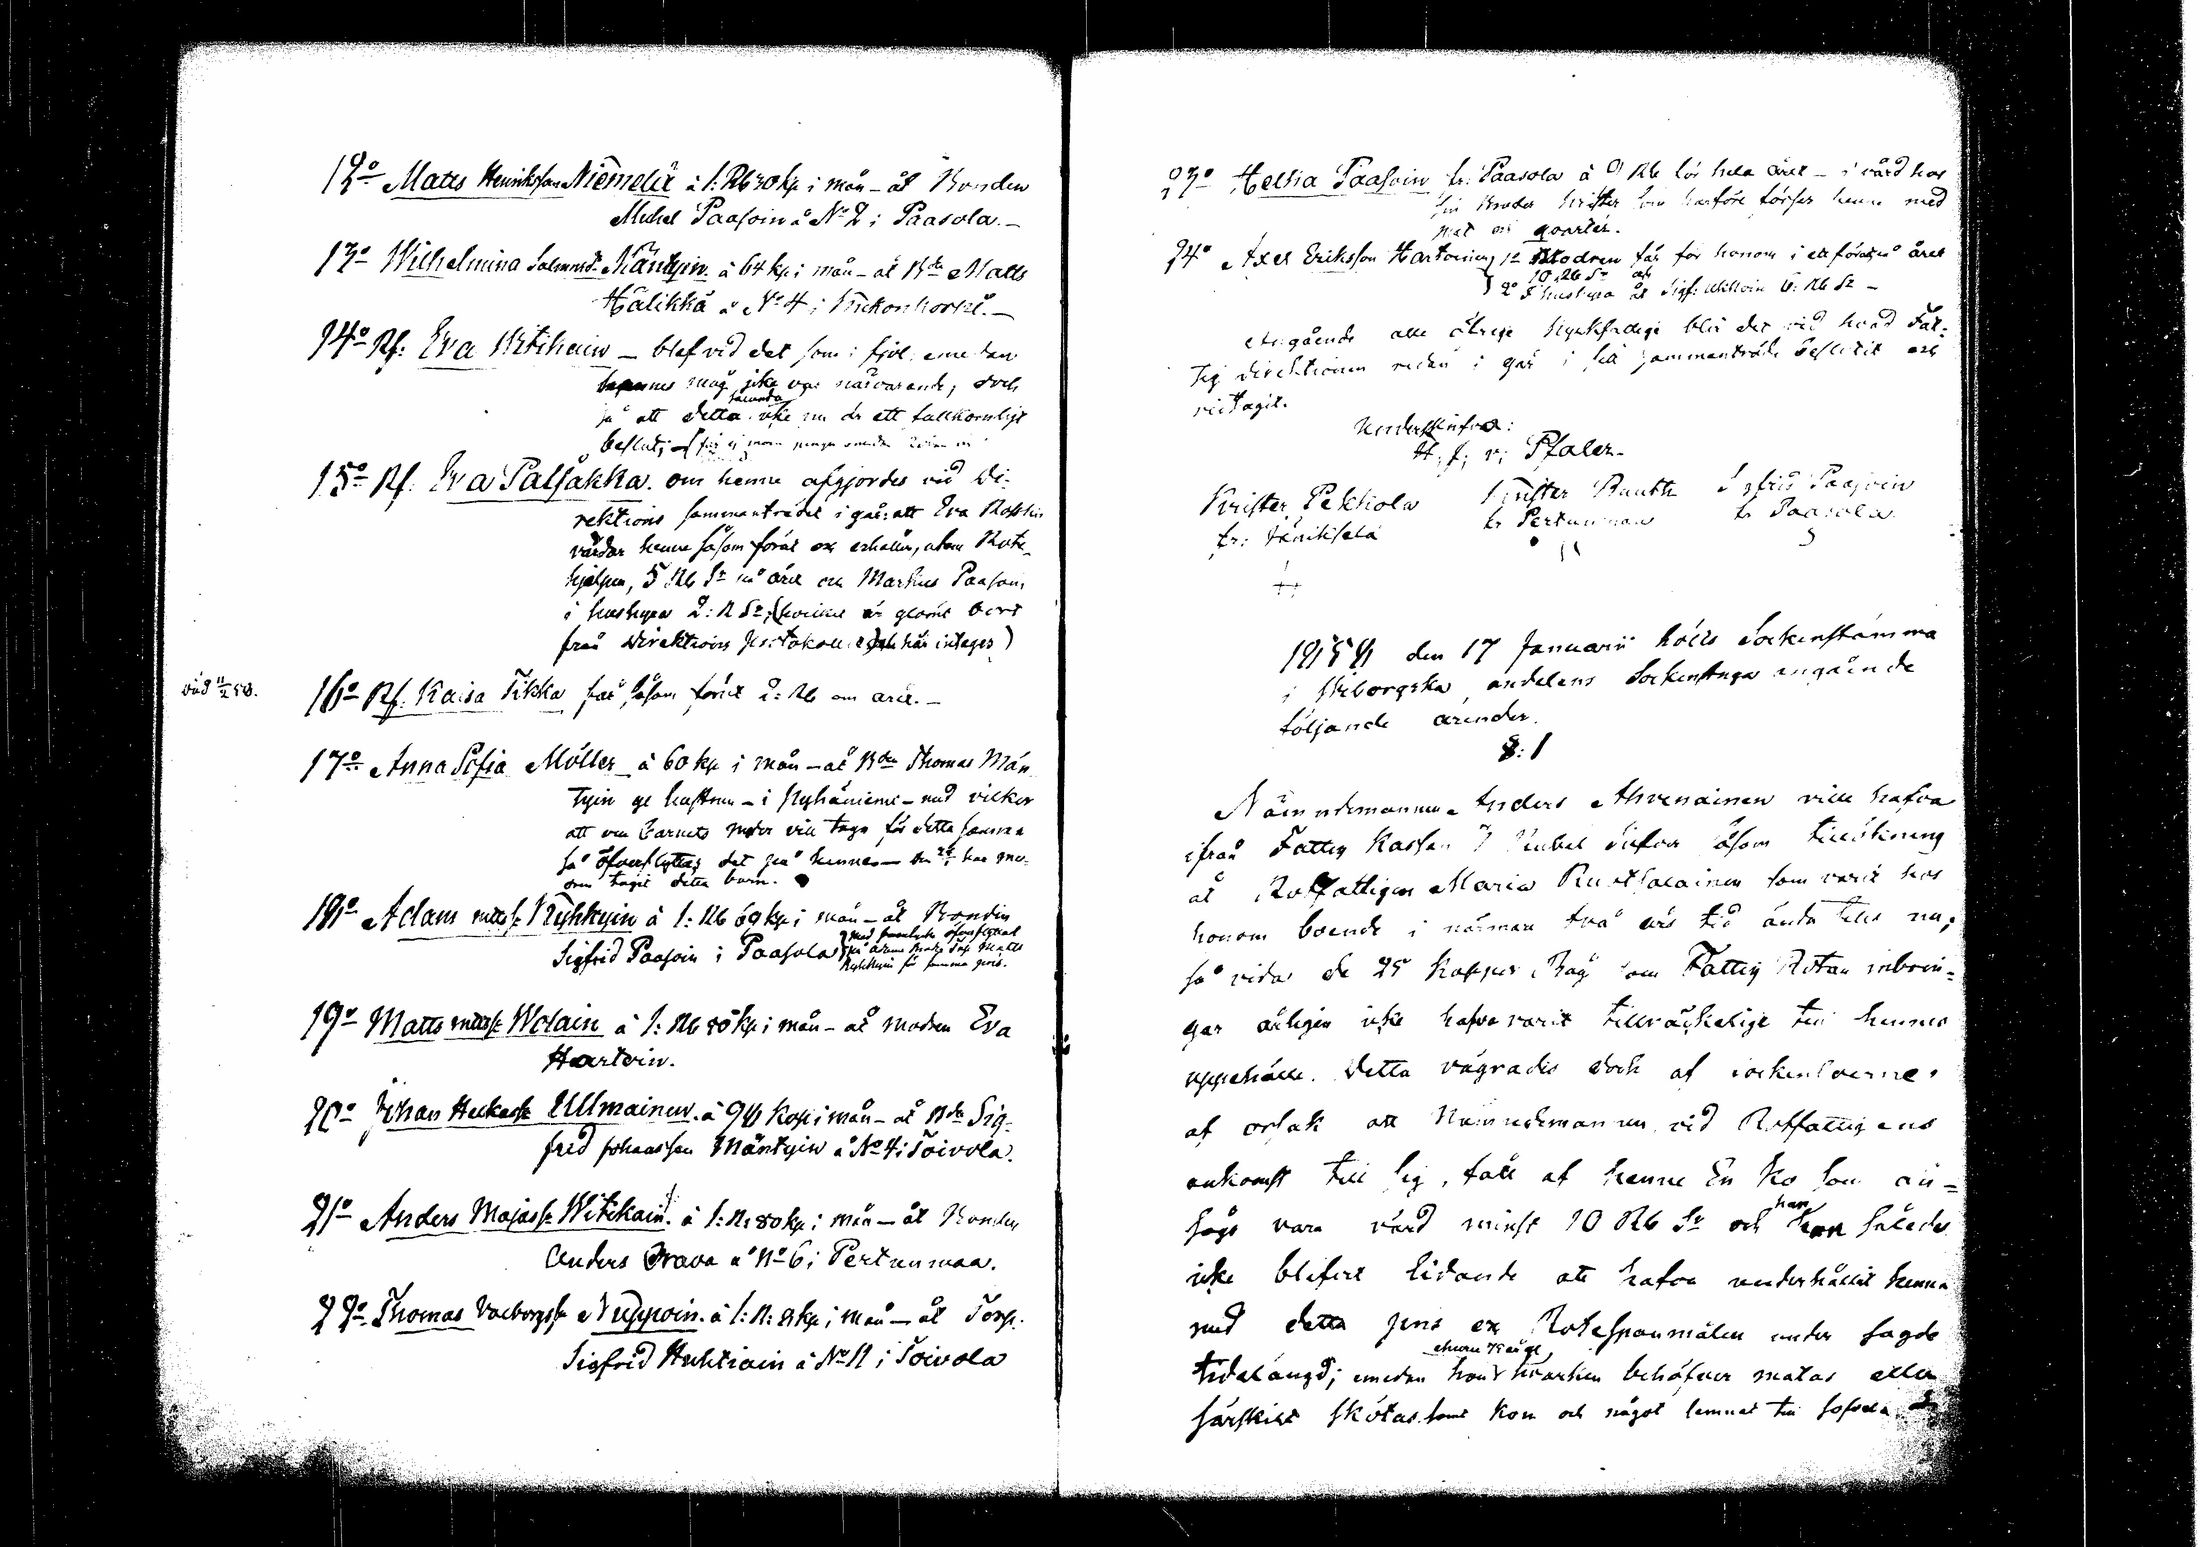 12o Matts Henriksson Niemelä à 1: Rb 30 kp i mån - åt Bonden
Michel Paasoin å No 2 i Paasola. -
13o Wilhelmina Salomsdr Mäntyin à 64 kp i mån - åt Bden Matts
Hälikkä å No 4 i Kuhonkorpi. -
14o Rf: Eva Witikain - blef vid det som i fjol, emedan
hennes måg icke var närvarande, och
så att detta således icke nu är ett fullkomligt
beslut;
15o Rf. Eva Palsakka. om henne afgjordes vid Di-
rektions sammanträdet i går: att Eva
vårdar henne såsom förut och erhåller, utom Rote-
hjelpen, 5 Rb Sr på året och Markus Paasoin
i hushyra 2: R Sr; (hvilket är glömt bort
från Direktions Protokollet och här intages)
vid 11/2 58.
16o Rf. Kaisa Tikka får såsom förut 2: Rb om året. -
17o Anna Sofia Möller à 60 kp i mån - åt Bden Thomas Män
tyin ge hustrun - i Pyhäniemi - med vilkor
att om Barnets moder vill taga för detta samma
så öfverflyttas det på henne - har mo-
dren tagit detta barn.
18o Adam matss: Kyhkyin à 1: Rb 69 kp i mån - åt Bonden
Sigfrid Paasoin i Paasola
med öfverflyttat
på Matts
Kyhkyin för samma pris.
19o Matts matss: Wolain à 1: Rb 80 kp i mån - åt modren Eva
Hartoin.
20o Johan Heikass: Ullmainen. à 98 Kop i mån - åt Bden Sig-
frid Johansson Mäntyin å No 4 i Toivola.
21o Anders Majass: Witikain. à 1: R: 80 kp i mån - åt Bonden
Anders Orava å No 6 i Pertunmaa.
22o Thomas Valborgss: Nuppoin. à 1: R: 8 kp i mån - åt Torp.
Sigfrid Huhtiain å No 11 i Toivola
23o Helena Paasoin fr: Paasola à 9 Rb för hela året - i vård hos
sin Broder Krister som härföre förser henne med
mat och qvarter.
24o Axel Eriksson Hartoinen 1o Modren får för honom i ett för allt på året
10 Rb Sr och
2o i hushyra åt Sigf: 6: Rb Sr -
Angående alla öfrige blir det vid hvad Fat-
tig direktionen redan i går i sitt sammanträde beslutit och
vidtagit.
Underskrifva:
H. f: v: Pfaler.
Krister Pekkola Krister Ruuth Sigfrid Paasoin
fr: Länikselä fr Pertunmaa fr Paasola
1858 den 17 Januarii hölls Sockenstämma
i Wiborgska andelens Sockenstuga angående
följande ärender.
§: 1
Nämndemannen Anders Ahvenainen ville hafva
ifrån Fattig Kassan 7 Rubel Silfver såsom tillökning
åt Rotfattigen Maria Ruotsalainen som varit hos
honom boende i närmare två års tid ända tills nu;
så vida de 25 Kappor Råg som Fattig Rotan inbrin-
gar årligen icke hafva varit tillräckelige till hennes
uppehälle. Detta vägrades dock af sockenboerne
af orsak att Nämndemannen vid Rotfattigens
ankomst till sig, fått af henne En Ko som an-
sågs vara värd minst 10 Rb Sr och han således
icke blifvit lidande att hafva underhållit henne
med detta pris och Rotespanmålen under sagde
tidelängd; emedan hon ehuru 75 årig hvarken behöfver matas eller
särskilt skötas. samt Kon och något lemnat till